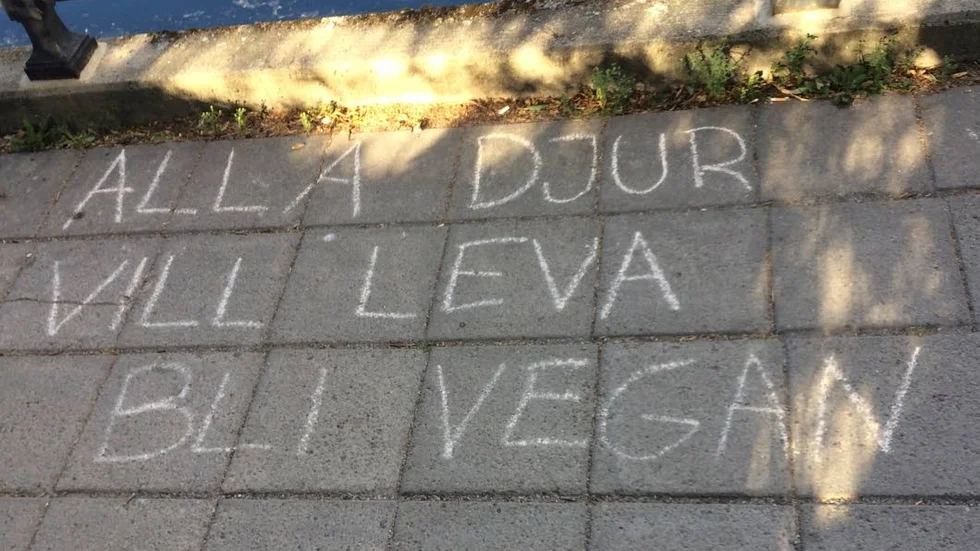 ALLA DJUR
VILL LEVA
BLI VEGAN